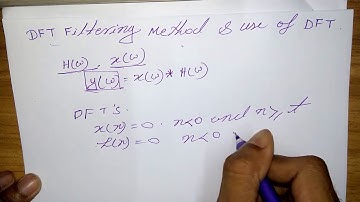 DFT Filtering Method & use of DFT
H(ω), x(ω)
y(ω) = x(ω) * H(ω)
DFT's.
x(n) = 0. n<0 and n≥ t
f(n) = 0 n<0